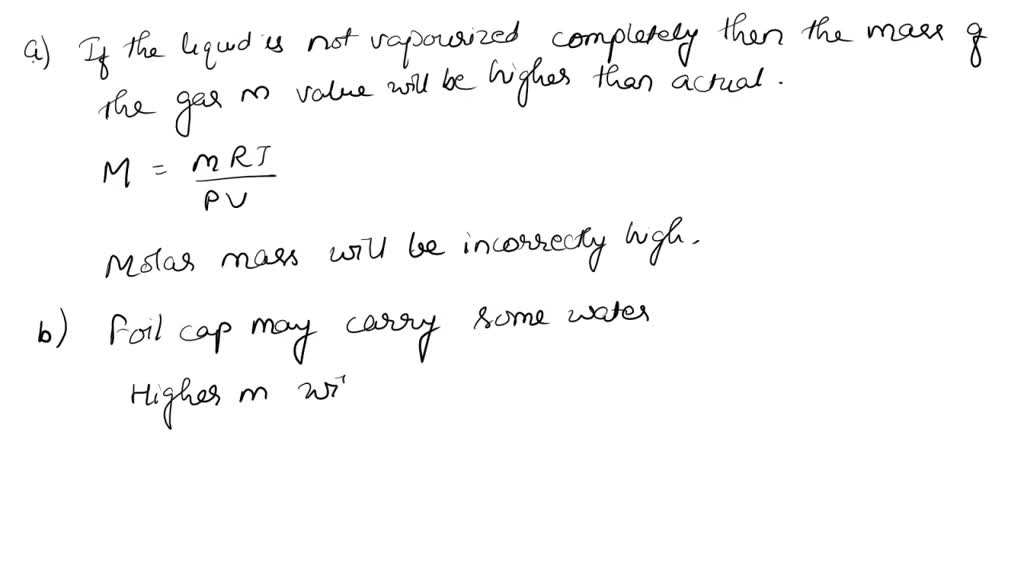 a) If the liquid is not vapourized completely then the mass of
the gas m value will be higher than actual.
M = mRT
PV
Molar mass will be incorrectly high.
b) Foil cap may carry some water
Higher m wi